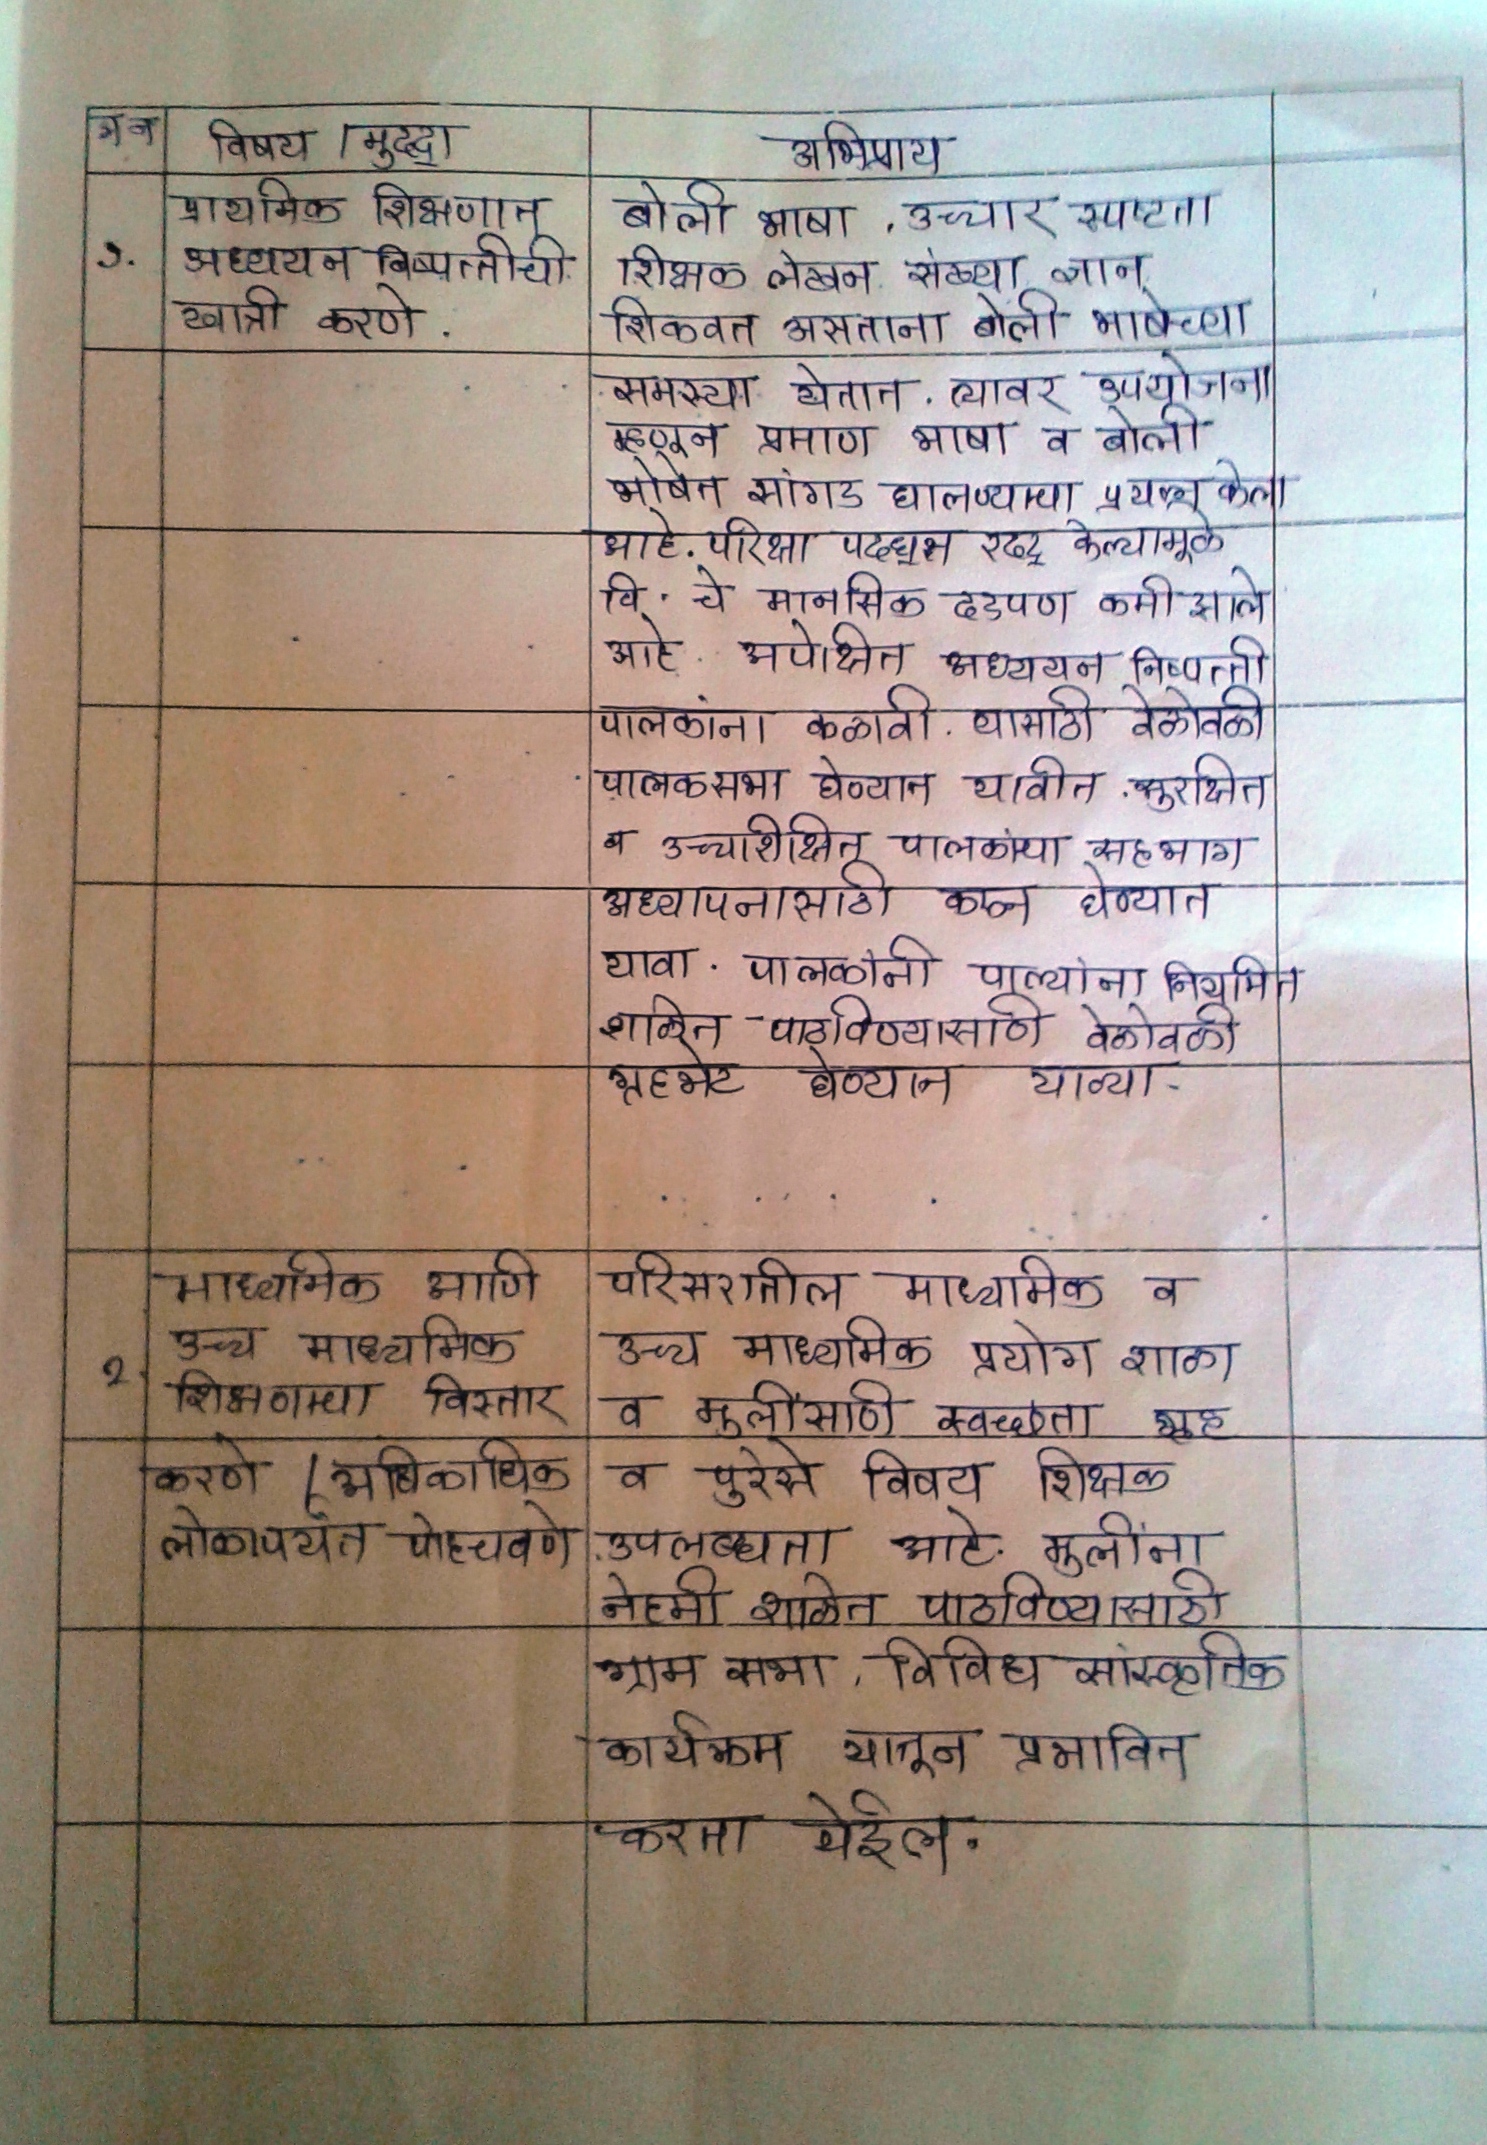 अ न विषय / मुद्दा अभिप्राय
प्राथमिक शिक्षणात
१. अध्ययन निष्पत्तीची
खात्री करणे .
बोली भाषा , उच्चार स्पष्टता
शिक्षक लेखन संख्या ज्ञान
शिकवत असताना बोली भाषेच्या
समस्या येतात . त्यावर उपयोजना
म्हणून प्रमाण भाषा व बोली
भाषेत सांगड घालण्याचा प्रयत्न केला
आहे . परिक्षा पद्धत रद्द केल्यामूळे
वि . चे मानसिक दडपण कमी झाले
आहे . अपेक्षित अध्ययन निष्पत्ती
पालकांना कळावी . यासाठी वेळोवळी
पालकसभा घेण्यात यावीत . सुरक्षित
व उच्चशिक्षित पालकांचा सहभाग
अध्यापनासाठी करून घेण्यात
यावा . पालकांनी पाल्यांना नियमित
शाळेत पाठविण्यासाठी वेळोवळी
गृहभेट घेण्यात याव्या -
माध्यमिक आणि
उच्च माध्यमिक
२. शिक्षणाचा विस्तार
करणे / अधिकाधिक
लोकापर्यंत पोहचवणे
परिसरातील माध्यमिक व
उच्च माध्यमिक प्रयोग शाळा
व मुलींसाठी स्वच्छता गृह
व पुरेसे विषय शिक्षक
उपलब्धता आहे . मुलींना
नेहमी शाळेत पाठविण्यासाठी
ग्राम सभा , विविध सांस्कृतिक
कार्यक्रम यातून प्रभावित
करता येईल .